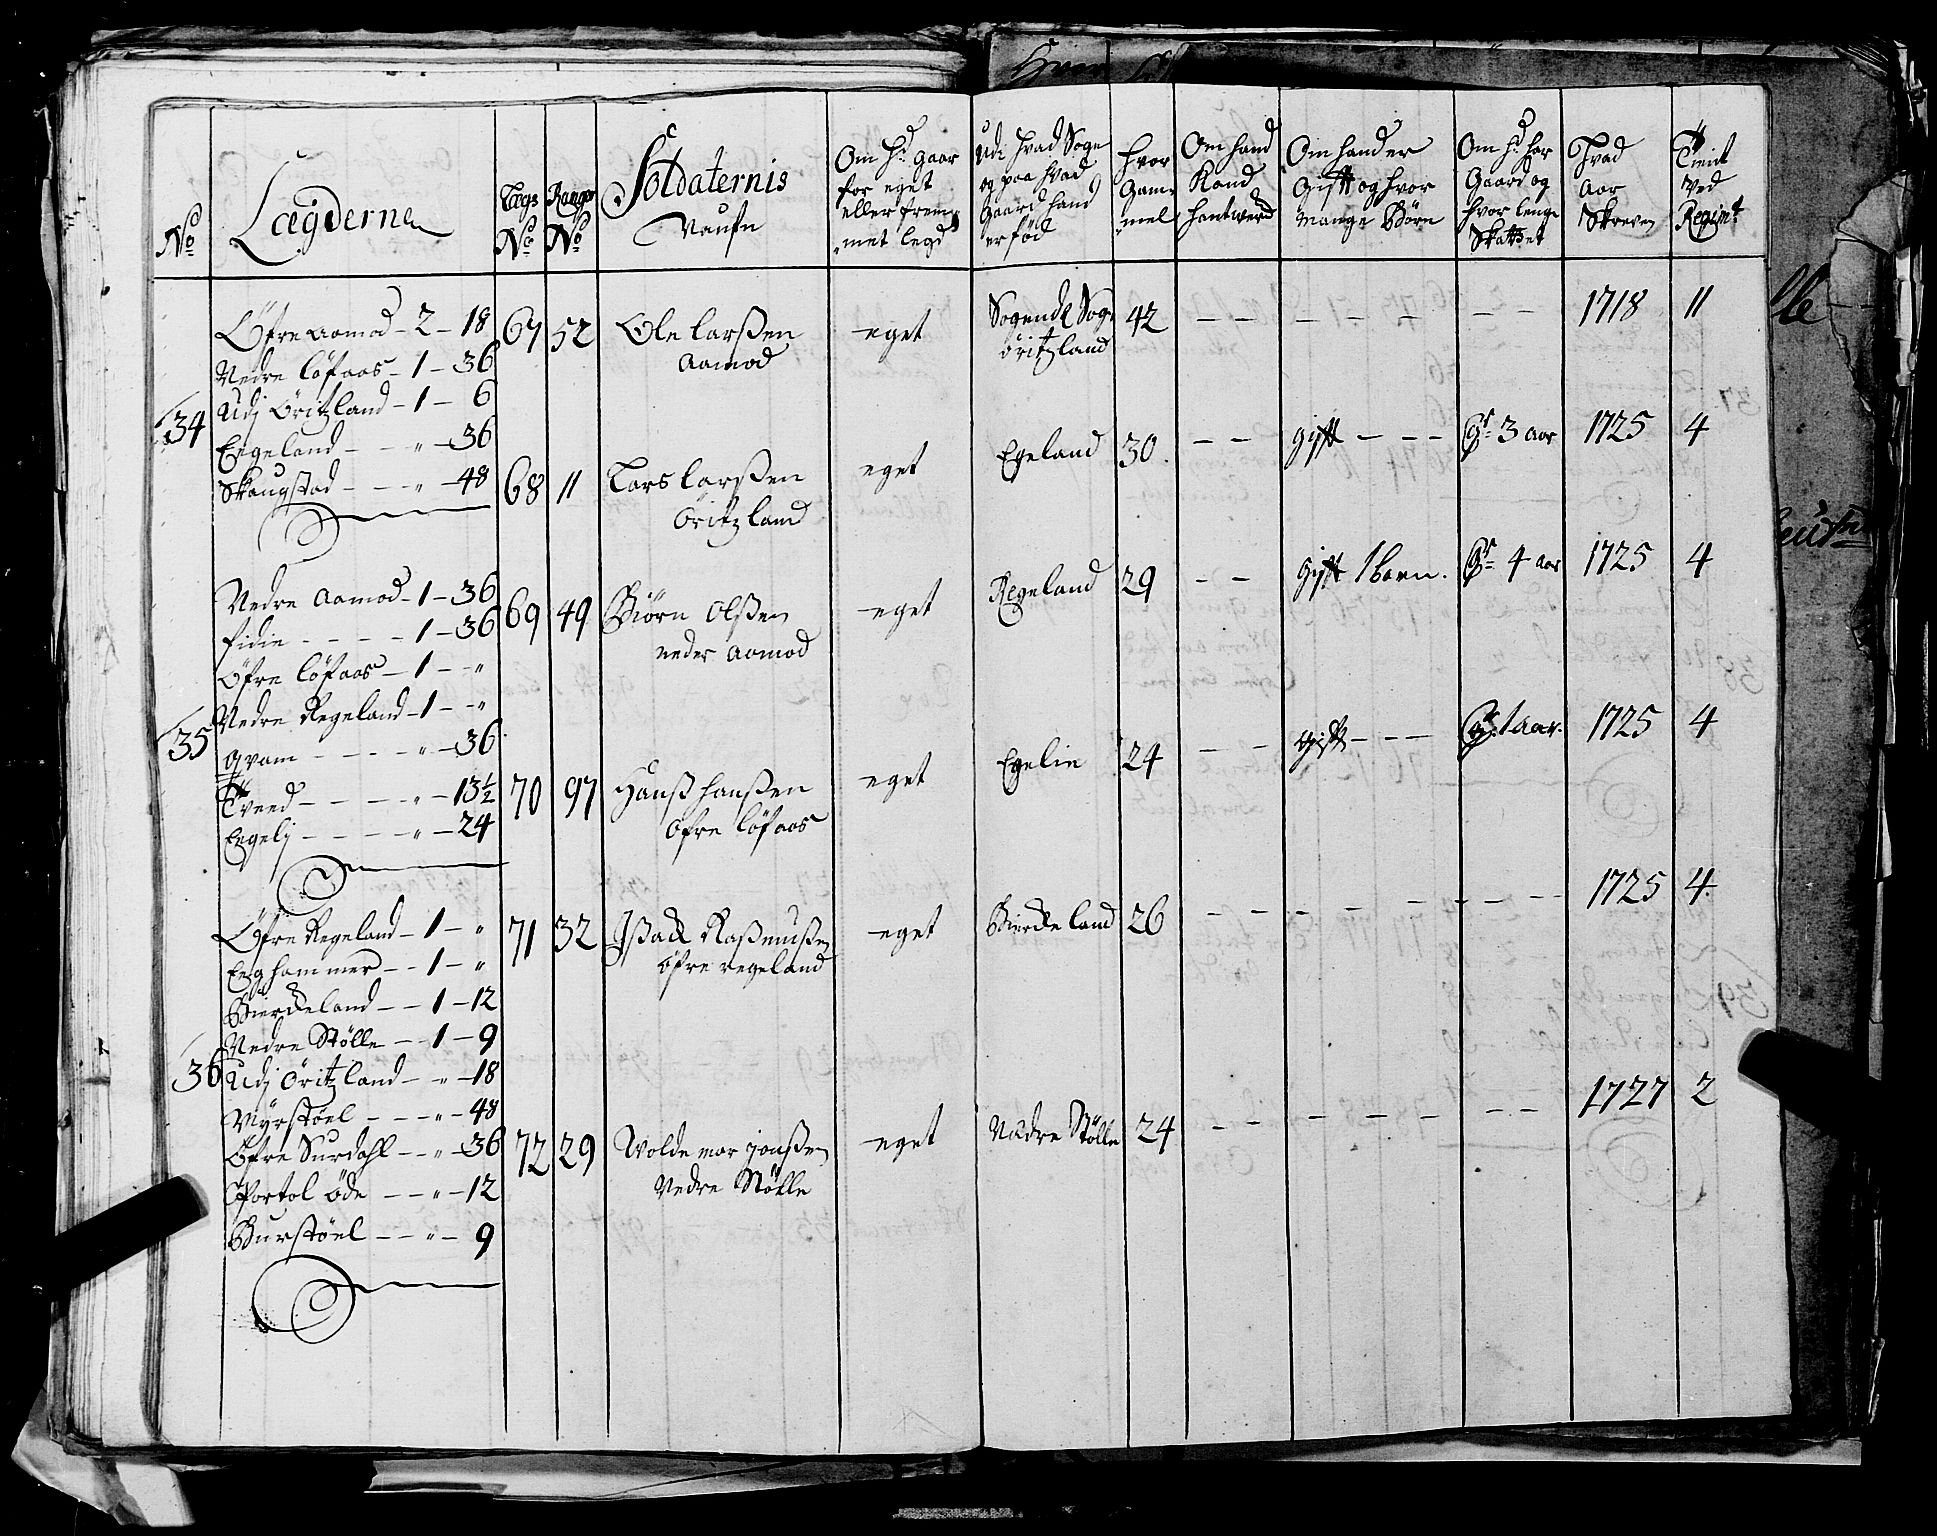 No
Lægderne
Lægs No
Range No
Soldaternis
Naufn
Om Hd gaar
for eget
eller frem-
met legd
Udi hvad Sogn
og paa hvad
Gaard hand
er fød
hvor
Gam-
mel
Om hand
Kand
hantwerck
Om hand er
gift og hvor
mange Børn
Om Hd har
Gaard og
hvor lenge
Skattet
Hvad
Aar
Skreven
Tient
ved
Regimt
34
Öfre Aamod – 2 – 18
Nedre löfaas – 1 – 36
Udj Öritzland – 1 – 6
Eegeland – – „ – 36
Skaugstad – – – „ – 48
67 52 Ole larßen
Aamod
eget
Sogendl Sogn
öritzland
42 – – – – – – – – 1718 11
68 11 Lars larßen
öritzland
eget Egeland 30 – – gift – – – Gr 3 aar 1725 4
35
Nedre Aamod – 1 – 36
fidie – – – – 1 – 36
Öfre löfaas – 1 – „
Nedre Regeland – 1 – „
qvam – – – – „ – 36
Tveed – – – – „ – 13½
Eegelj – – – – „ – 24
69 49 Biörn Olßen
neder Aamod
eget Regeland 29 – – gift 1 barn. Gr 4 aar 1725 4
70 97 Hanß hanßen
öfre löfaas
eget Egelie 24 – – gift – – – Gr 1 aar. 1725 4
36
Öfre Regeland – 1 – „
Eeghammer – – 1 – „
Bierckeland – – 1 – 12
Nedre Stölle – – 1 – 9
Udj Öritzland – – „ – 18
Myrstöel – – – „ – 48
Öfre Surdahl – – „ – 36
Portol öde – – „ – 12
Burstöel – – „ – 9
71 32 Jßack Raßmußen
öfre regeland
eget Bierckeland 26 – – – – – – – – 1725 4.
72 29 Wolde mar jonßen
Nedre Stölle
eget Nædre Stölle 24 – – – – – – – – 1727 2